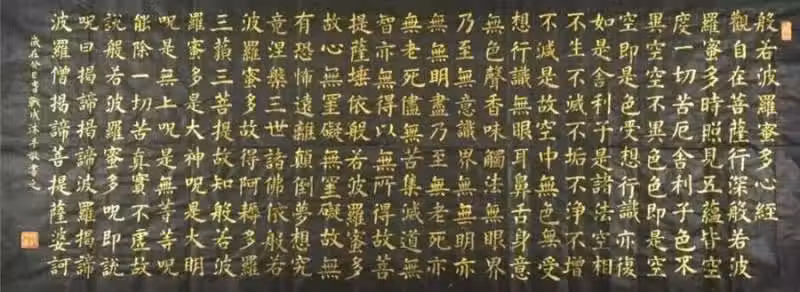 般若波羅蜜多心經
觀自在菩薩行深般若波
羅蜜多時照見五蘊皆空
度一切苦厄舍利子色不
異空空不異色色即是空
空即是色受想行識亦復
如是舍利子是諸法空相
不生不滅不垢不淨不增
不減是故空中無色無受
想行識無眼耳鼻舌身意
無色聲香味觸法無眼界
乃至無意識界無無明亦
無無明盡乃至無老死亦
無老死盡無苦集滅道無
智亦無得以無所得故菩
提薩埵依般若波羅蜜多
故心無罣礙無罣礙故無
有恐怖遠離顛倒夢想究
竟涅槃三世諸佛依般若
波羅蜜多故得阿耨多羅
三藐三菩提故知般若波
羅蜜多是大神呪是大明
呪是無上呪是無等等呪
能除一切苦真實不虛故
說般若波羅蜜多呪即說
呪曰揭諦揭諦波羅揭諦
波羅僧揭諦菩提薩婆訶
沐手敬書之